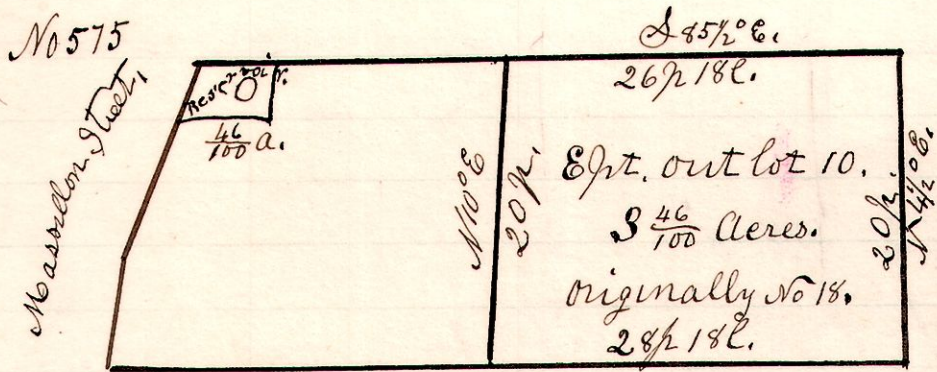 No 575
S 85 1/2° E.
Massillon Street,
Reservoir.
46/100 a.
N 10° E
20 p.
26 p 18 l.
E pt. out lot 10.
3 46/100 Acres.
originally No 18.
28 p 18 l.
20 p.
N 4 1/2° E.